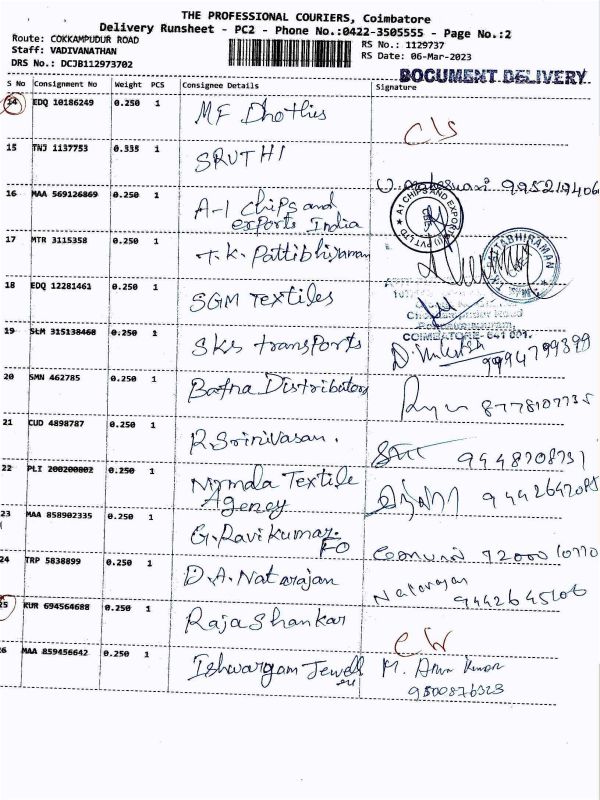 THE PROFESSIONAL COURIERS, Coimbatore
Delivery Runsheet - PC2 - Phone No.:0422-3505555 - Page No.:2
Route: COKKAMPUDUR ROAD
Staff: VADIVANATHAN
DRS No.: DCJB112973702
RS No.: 1129737
RS Date: 06-Mar-2023
DOCUMENT DELIVERY
S No Consignment No Weight PCS Consignee Details Signature
14 EDQ 10186249 0.250 1 MF Dhothies C/S
15 TNJ 1137753 0.335 1 SRUTHI
16 MAA 569126869 0.250 1 A-1 chips and
exports India
A1 CHIPS AND EXPORTS (I) PVT LTD
17 MTR 3115358 0.250 1 T.K. Pattibhiraman
18 EDQ 12281461 0.250 1 SGM Textiles
COIMBATORE-641 001.
19 SLM 315138468 0.250 1 SKS transports 9994799399
20 SMN 462785 0.250 1 Bafna Distributors 8778107735
21 CUD 4898787 0.250 1 R. Srinivasan. 9448708731
22 PLI 200200802 0.250 1 Nirmala Textile
Agency
23 MAA 858902335 0.250 1 G. Ravikumar.
FO
24 TRP 5838899 0.250 1 D.A. Natarajan Natarajan
9442645106
25 KUR 694564688 0.250 1 Raja Shankar
26 MAA 859456642 0.250 1 Ishwaryam Jewell M. Arun Kumar